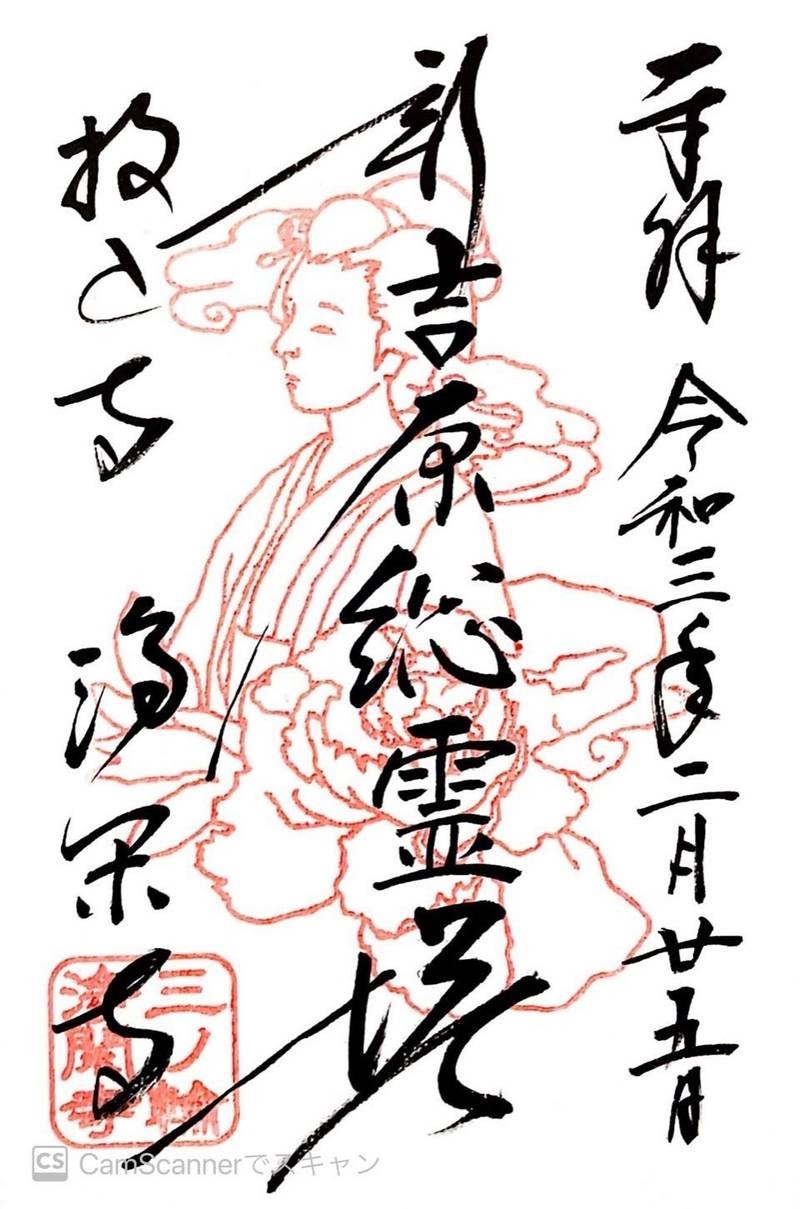 奉拝 令和三年二月廿五日
新吉原総霊塔
投込寺 浄閑寺
三ノ輪
浄閑寺
CS CamScannerでスキャン